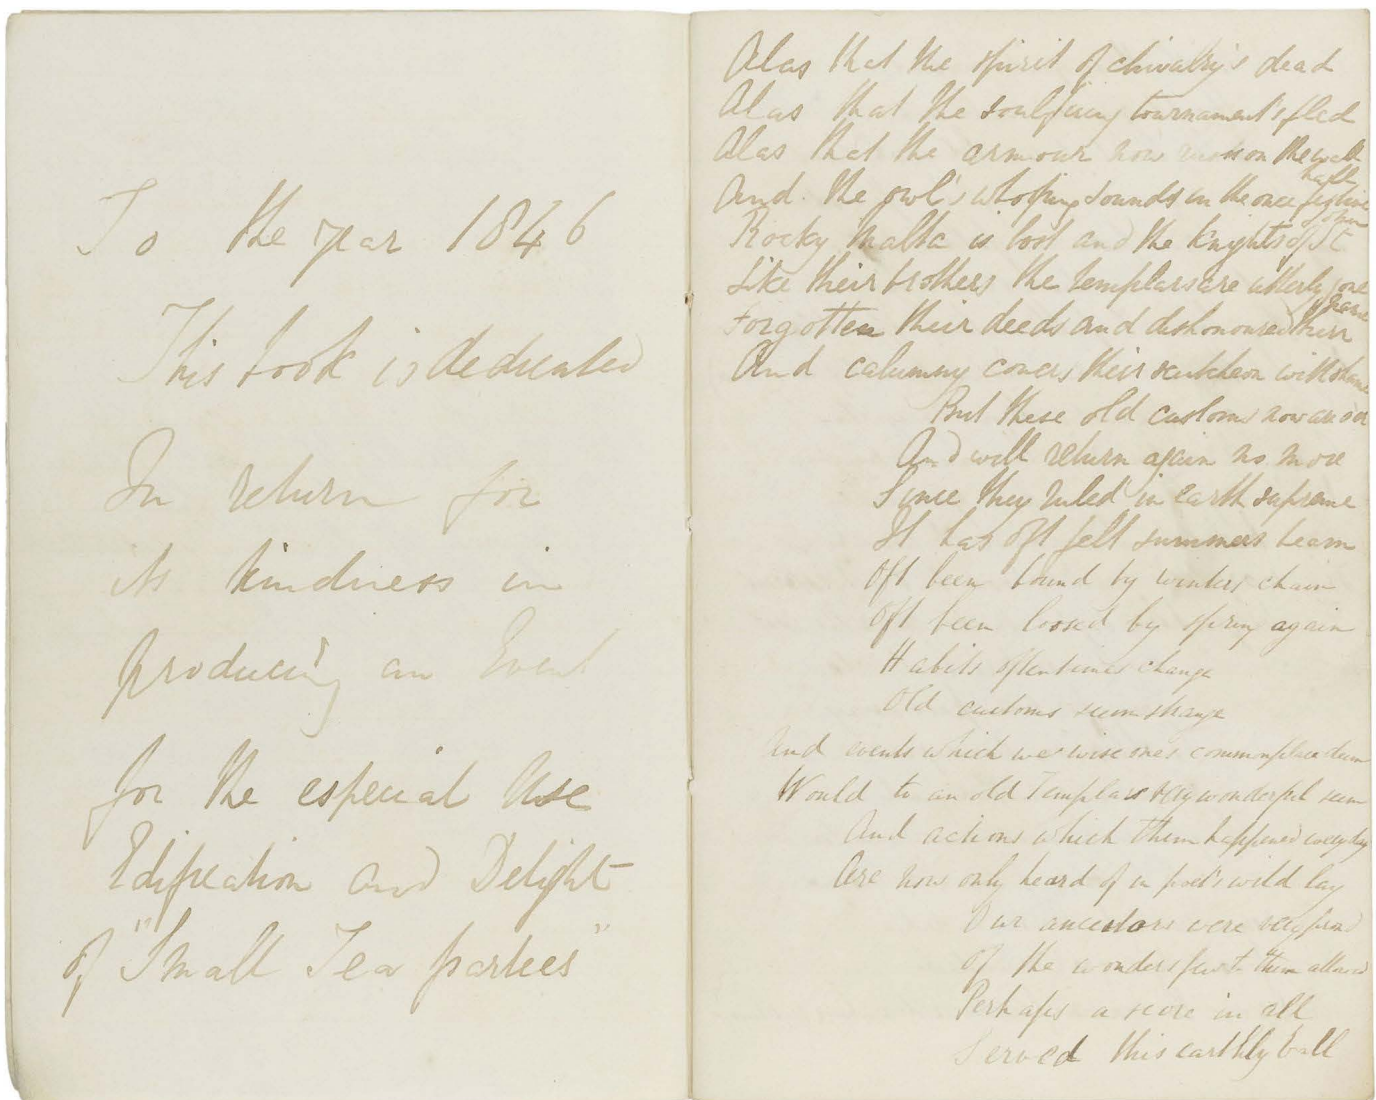 To the year 1846
This book is dedicated
In return for
its kindness in
producing an Event
for the especial Use
Edification and Delight
of "Small Tea parties"
Alas that the spirit of chivalry's dead
Alas that the soulfiring tournament's fled
Alas that the armour now rusts on the wall
And the owl's whooping sounds in the once festive hall
Rocky Malta is lost and the knights of St John
Like their brothers the templars are utterly gone
Forgotten their deeds and dishonoured their name
And calumny covers their scutcheon with shame
But these old customs now are oer
And will return again no more
Since they ruled in earth supreme
It has oft felt summers beam
Oft been bound by winters chain
Oft been loosed by spring again
Habits oftentimes change
Old customs seem strange
And events which we wise ones commonplace deem
Would to an old Templar very wonderful seem
And actions which them happened every day
Are now only heard of in poet's wild lay
Our ancestors were very
Of the wonders past them allowed
Perhaps a score in all
Served this earthly ball